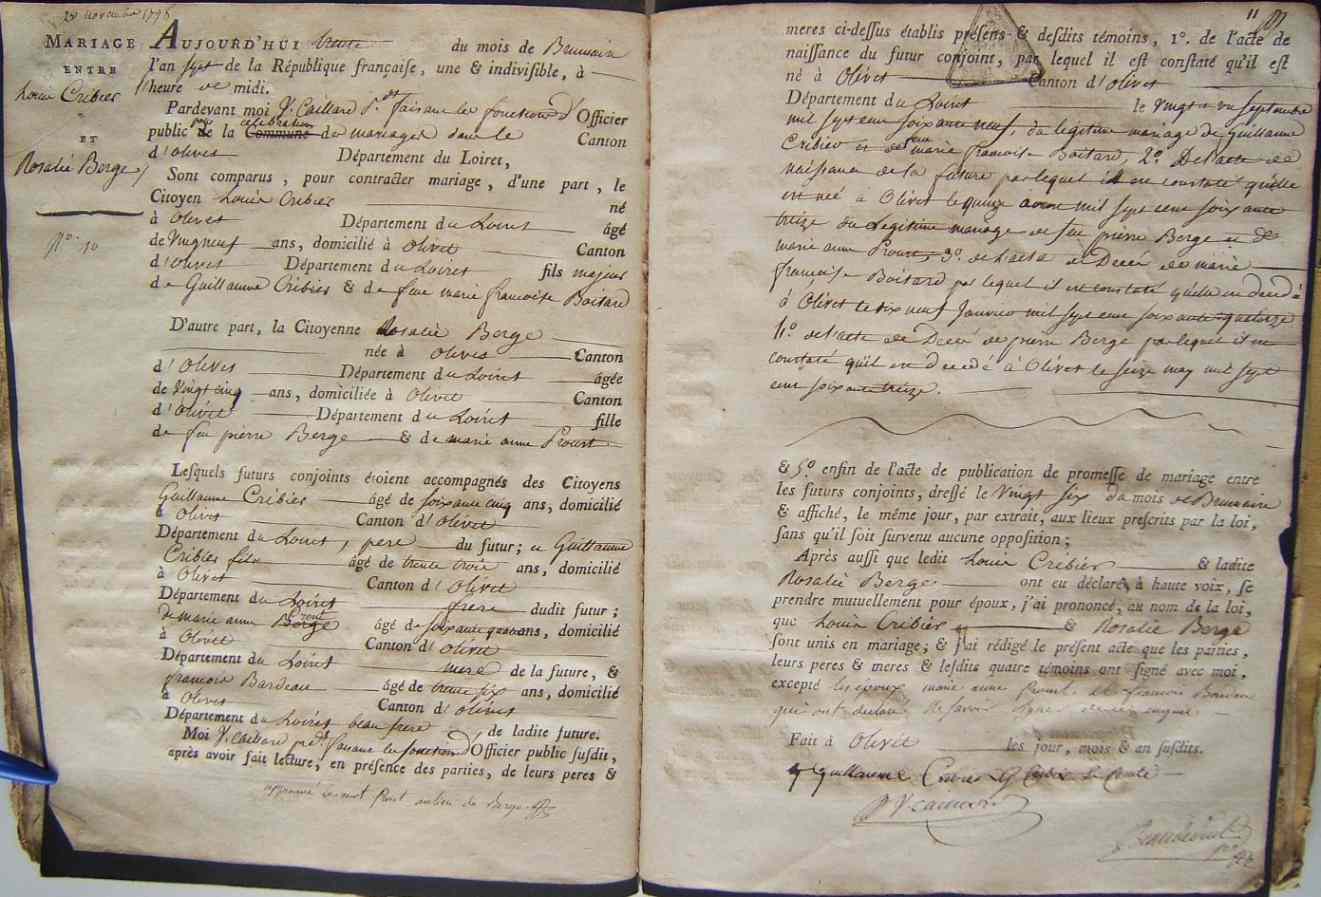 20 novembre 1798
MARIAGE
ENTRE
Louis Cribier
ET
Rosalie Berge
N.º 10
AUJOURD'HUI trente du mois de Brumaire
l'an sept de la République françaiſe, une & indiviſible, à
heure de midi.
Pardevant moi V. Caillard p.dt faisant les fonctions d'Officier
public de la célébration Commune du mariages dans le Canton
d'olivet Département du Loiret,
Sont comparus, pour contracter mariage, d'une part, le
Citoyen Louis Cribier né
à Olivet Département du Loiret âgé
de Vingneuf ans, domicilié à Olivet Canton
d'olivet Département du Loiret fils majeur
de Guillaume Cribier & de feue marie françoise Boitard
D'autre part, la Citoyenne Rosalie Berge
née à olivet Canton
d'Olivet Département du Loiret âgée
de Vingt cinq ans, domiciliée à Olivet Canton
d'Olivet Département du Loiret fille
de feu pierre Berge & de marie anne Proust
Leſquels futurs conjoints étoient accompagnés des Citoyens
Guillaume Cribier âgé de soixante cinq ans, domicilié
à Olivet Canton d'Olivet
Département du Loiret, pere du futur; et Guillaume
Cribier fils âgé de trente trois ans, domicilié
à Olivet Canton d'Olivet
Département du Loiret frere dudit futur;
de marie anne Berge Proust âgé de soixante quatre ans, domicilié
à Olivet Canton d'olivet
Département du Loiret mere de la future, &
françois Bardeau âgé de trente six ans, domicilié
à Olivet Canton d'olivet
Département du Loiret beau frere de ladite future.
Moi V. Caillard pred.t faisant les fonctions d'Officier public ſuſdit,
après avoir fait lecture, en préſence des parties, de leurs peres &
approuvé le mot Proust au lieu de Berge
11
meres ci-deſſus établis préſens & deſdits témoins, 1°. de l'acte de
naiſſance du futur conjoint, par lequel il eſt conſtaté qu'il eſt
né à Olivet Canton d'olivet
Département du Loiret le Vingt un Septembre
mil sept cent soixante neuf, du legitime mariage de Guillaume
Cribier et de feue marie françoise Boitard, 2º. De l'acte de
naissance de la future par lequel il est constaté qu'elle
est née à Olivet le quinze aoust mil sept cent soixante
treize du Legitime mariage de feu pierre Berge et de
marie anne Proust, 3º. de l'acte de Decès de marie
françoise Boitard par lequel il est constaté qu'elle est decedé
à Olivet le dix neuf Janvier mil sept cent soixante quatorze
4º. de l'acte de Decès de pierre Berge par lequel il est
constaté qu'il est decedé à Olivet le seize may mil sept
cent soixante treize.
& 5º enfin de l'acte de publication de promeſſe de mariage entre
les futurs conjoints, dreſſé le Vingt six du mois de Brumaire
& affiché, le même jour, par extrait, aux lieux preſcrits par la loi,
ſans qu'il ſoit ſurvenu aucune oppoſition;
Après auſſi que ledit Louis Cribier & ladite
Rosalie Berge ont eu déclaré, à haute voix, ſe
prendre mutuellement pour époux, j'ai prononcé, au nom de la loi,
que Louis Cribier & Rosalie Berge
ſont unis en mariage; & j'ai rédigé le préſent acte que les parties,
leurs peres & meres & leſdits quatre témoins ont ſigné avec moi,
excepté les époux marie anne Proust et françois Bardeau
qui ont declaré ne savoir signer de ce enquis.
Fait à Olivet les jour, mois & an ſuſdits.
Guillaume Cribier G Cribier
V Caillard